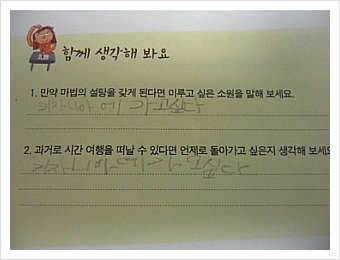 함께 생각해 봐요
1. 만약 마법의 설탕을 갖게 된다면 이루고 싶은 소원을 말해 보세요.
키자니아에 가고싶다
2. 과거로 시간 여행을 떠날 수 있다면 언제로 돌아가고 싶은지 생각해 보세요
키자니아 싶다